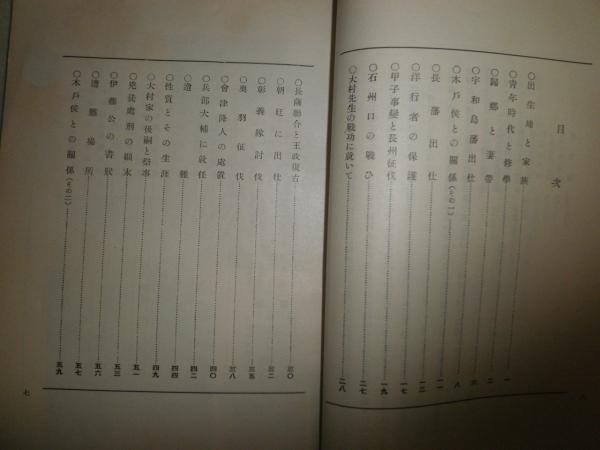 目次
○出生地と家族
○青年時代と修學……一
○歸郷と妻帶……二
○宇和島藩出仕……六
○木戸侯との關係(その一)……八
○長藩出仕……一一
○洋行者の保護……一七
○甲子事變と長州征伐……一九
○石州口の戰ひ……二七
○大村先生の戰功に就いて……二八
○長薩聯合と王政復古……三〇
○朝廷に出仕……三二
○彰義隊討伐……三五
○奥羽征伐……三八
○會津降人の處置……四〇
○兵部大輔に就任……四二
○遭難……四四
○性質とその生涯……四九
○大村家の後嗣と祭事……五一
○兇徒處刑の顛末……五三
○伊藤公の書狀……五六
○遭難場所……五七
○木戸侯との關係(その二)……五九
七